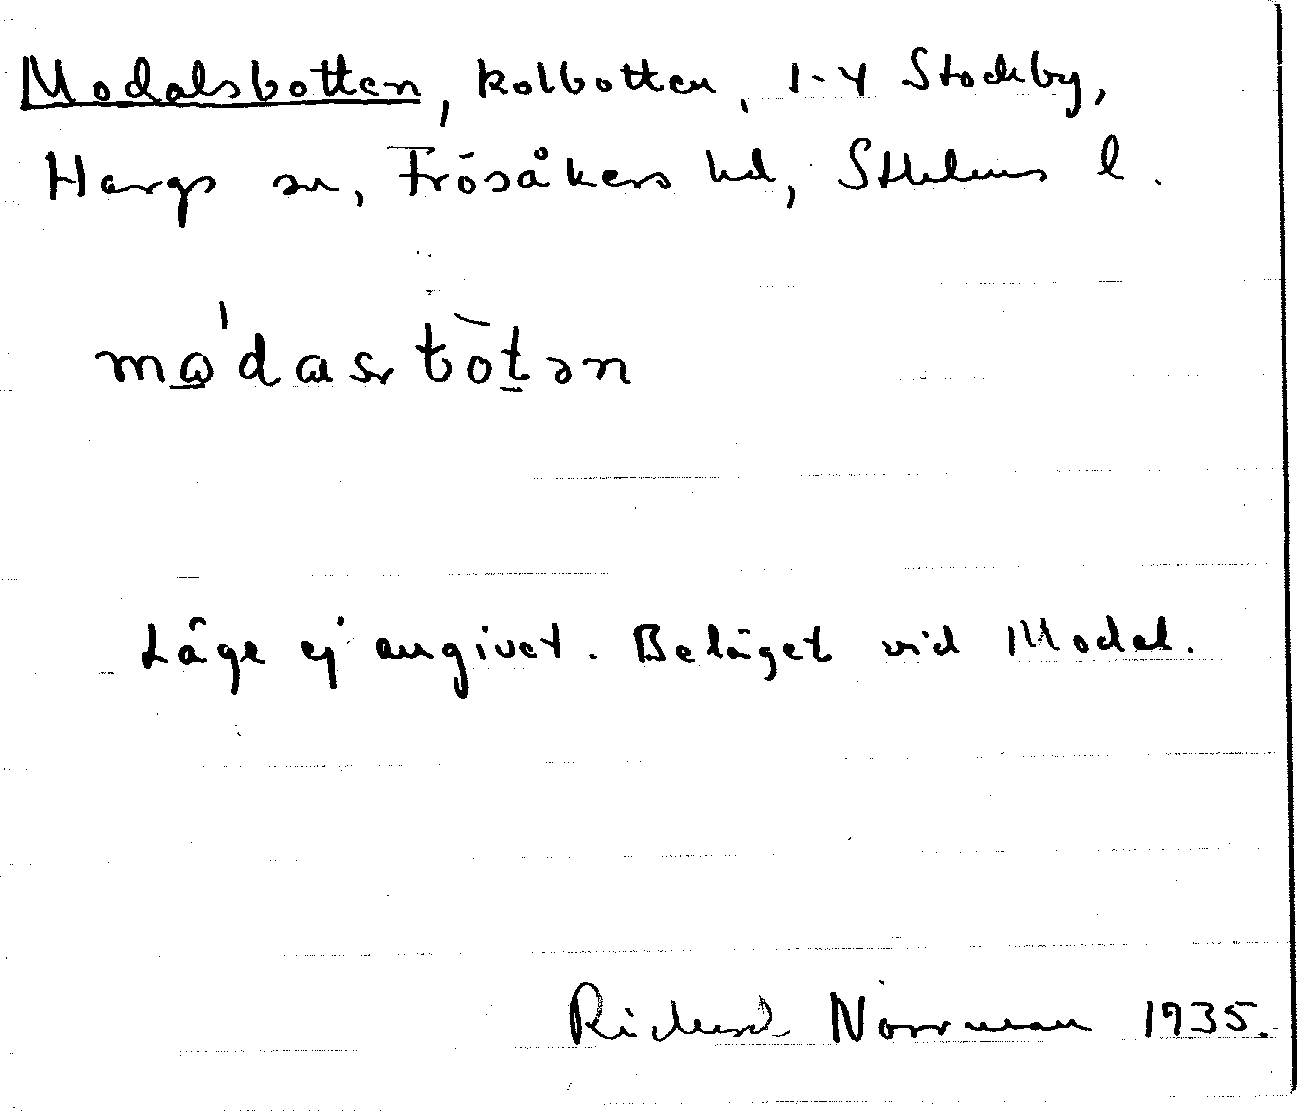 Modalsbotten, kolbotten, 1-4 Stockby,
Hargs sn, Frösåkers hd, Sthlms l.
mo̲'dasr bo̅t̲ən
Läge ej angivet. Beläget vid Modal.
Richard Norrman 1935.